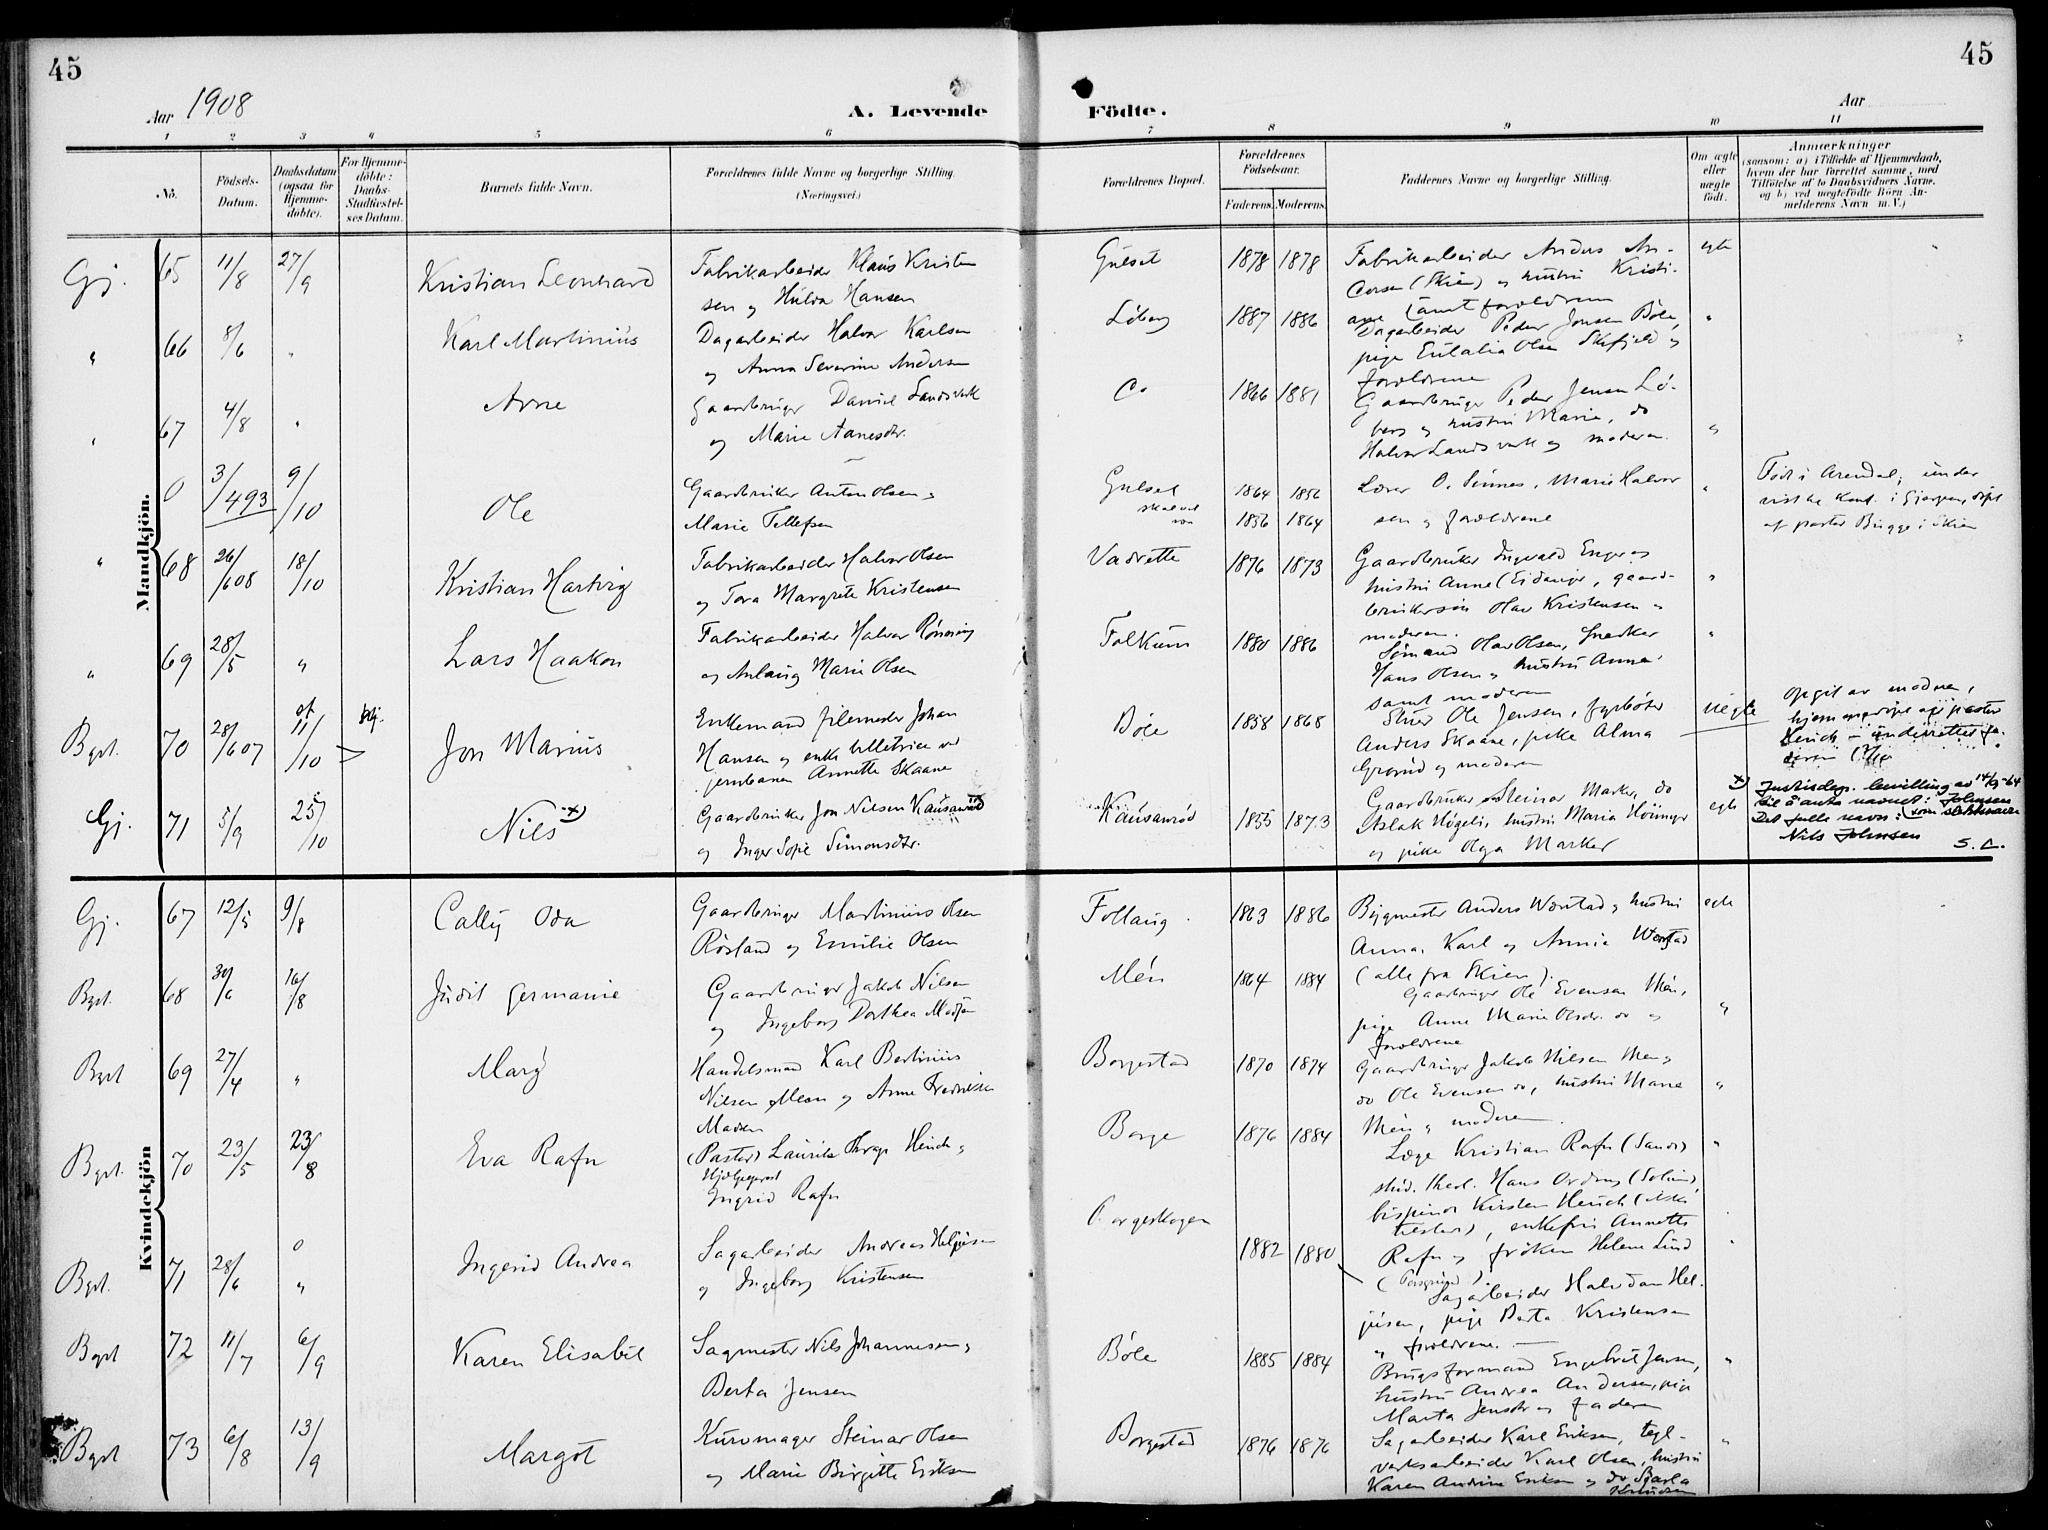 45
45
Aar 1908
A. Levende
Födte.
Aar
1 2 3 4 5 6 7 8 9 10 11
No.
Födsels-
Datum.
Daabsdatum
(ogsaa for
Hjemme-
döbte).
For Hjemme-
döbte:
Daabs-
Stadfæstel-
ses Datum.
Barnets fulde Navn.
Forældrenes fulde Navne og borgerlige Stilling.
(Næringsvei.)
Forældrenes Bopæl.
Forældrenes
Fødselsaar.
Faderens. Moderens.
Faddernes Navne og borgerlige Stilling.
Om ægte
eller
uægte
födt.
Anmærkninger
(saasom: a) i Tilfælde af Hjemmedaab,
hvem der har forrettet samme, med
Tilföielse af to Daabsvidners Navne.
og b) ved uægtefödte Börn An-
melderens Navn m. V.)
Mandkjön.
Gj. 65 11/8 27/9 Kristian Leonhard
Fabrikarbeider Klaus Kristen
sen og Hulda Hansen
Gulset 1878 1878
Fabrikarbeider Anders An-
(Skien) og hustru Kristi-
ane samt forældrene
egte
" 66 8/6 " Karl Martinius
Dagarbeider Halvor Karlsen
og Anna Severine Andersen
Löberg 1887 1886
Dagarbeider Peder Jensen Böle,
pige Eulalia Olsen og
forældrene
"
" 67 4/8 " Arne
Gaardbruger Daniel Landsverk
og Marie Aanesdtr.
1866 1881
Gaardbruger Peder Jensen Lö-
berg og hustru Marie, do
Halvor Landsverk og moderen.
"
0 3/493 9/10 Ole
Gaardbruker Anton Olsen og
Marie Tellefsen
Gulset
1864 1856
1856 1864
Lærer O. Sinnes, Marie Halvor
sen og forældrene
"
Född i Arendal; under
af pastor Bugge i Skien
" 68 26/608 18/10 Kristian Hartvig
Fabrikarbeider Halvor Olsen
og Tora Margrete Kristensen
Vadrette 1876 1873
Gaardbruker Ingvald Enger og
hustru Anne (Eidanger, gaard-
brukersön Olav Kristensen og
moderen.
"
" 69 28/5 " Lars Haakon
Fabrikarbeider Halvor Rönning
og Anlaug Marie Olsen
Folkum 1880 1886
Sömand Olav Olsen, Snedker
Hans Olsen og hustru Anna,
samt moderen
"
Bgst. 70 28/607 11/10 Jon Marius
Enkemand filemester Johan
Hansen og enke billetrice ved
jernbanen Annette Skaane
Böle 1858 1868
Ole Jensen, fyrböter
Anders Skaane, pike Alma
Grorud og moderen
uegte
opgit av modren,
Gj. 71 5/9 25/10 Nils x)
Gaardbruker Jon Nilsen Kausanröd
og Inger Sofie Simonsdtr.
Kausanröd 1855 1873
Gaardbruker Steinar Marker, do
Aslak Högeli, hustru Maria
og pike Olga Marker
egte
x) Justisdep. bevilling av 14/9-64
til å anta navnet: Johnsen
Det fulle navn: (som slektsnavn
Nils Johnsen
S. L.
Kvindekjön
Gj. 67 12/5 9/8 Cally Oda
Gaardbruger Martinius Olsen
Rösland og Emilie Olsen
Follaug 1863 1886
Bygmester Anders Worstad og hustru
Anna, Karl og Annie Worstad
(alle fra Skien).
egte
Bgst. 68 30/6 16/8 Judit Germanie
Gaardbruger Jakob Nilsen
og Ingeborg Dorthea
Mén 1864 1884
Gaardbruger Ole Evensen Mén,
pige Anne Marie Olsdr. do og
forældrene
"
Bgst 69 27/4 " Mary
Handelsmand Karl Bertinius
Nilsen Meen og Anne Fredrikke
Madsen
Borgestad 1870 1874
Gaardbruger Jakob Nilsen Men og
do Ole Evensen do, hustru Marie
Mén og moderen.
"
Bgst. 70 23/5 23/8 Eva Rafn
(Pastor) Laurits Heuch og
Ingrid Rafn
Borge 1876 1884
Læge Kristian Rafn (Sand)
stud. theol. Hans Ording (Solum)
bispinde Kirsten Heuch
enkefru Annette
Rafn og fröken Helene Lund
(Porsgrund).
"
Bgst. 71 28/6 " Ingerid Andrea
Sagarbeider Andreas Heljesen
og Ingeborg Kristensen
Borgeskogen 1882 1880
Sagarbeider Halvdan Hel-
jesen, pige Berta Kristensen
og forældrene.
"
Bgst 72 11/7 6/9 Karen Elisabet
Sagmester Nils Johannesen og
Berta Jensen
Böle 1885 1884
Brugsformand Engebret Jensen,
hustru Andrea Andersen, pige
Marta Jensdtr og faderen
"
Bgst 73 6/8 13/9 Margot
Kurvmager Steinar Olsen
og Marie Birgitte Eriksen
Borgestad 1876 1876
Sagarbeider Karl Eriksen, tegl-
verksarbeider Karl Olsen, hustru
Karen Andrine Eriksen og do
Knudsen
"